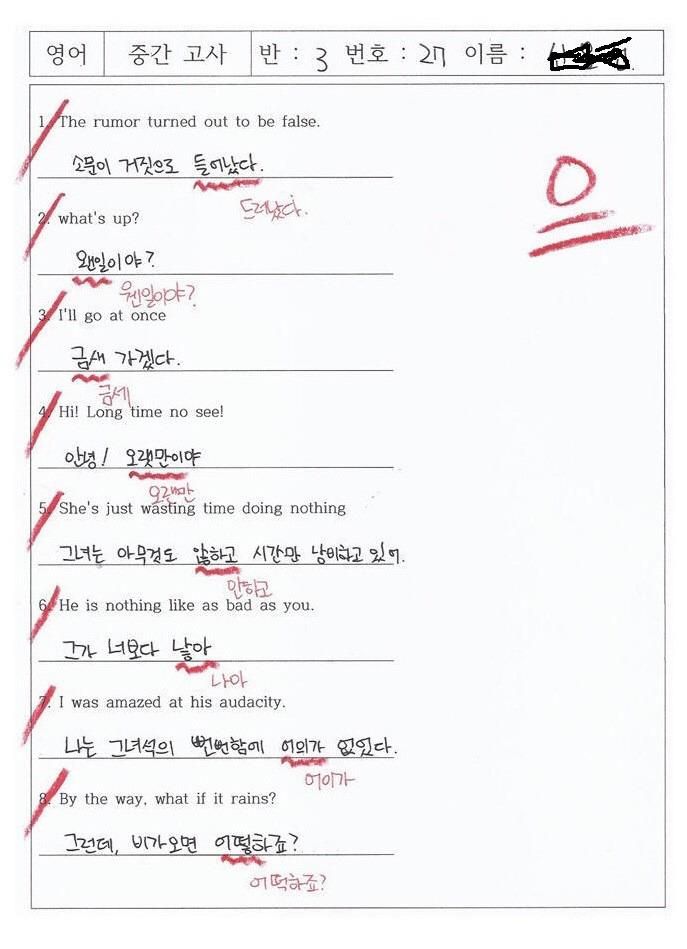 영어 중간 고사 반 : 3 번호 : 27 이름 :
1. The rumor turned out to be false.
소문이 거짓으로 들어났다.
드러났다.
2. what's up?
왠일이야?
웬일이야?
3. I'll go at once
금새 가겠다.
금세
4. Hi! Long time no see!
안녕! 오랫만이야
오랜만
5. She's just wasting time doing nothing
그녀는 아무것도 않하고 시간만 낭비하고 있어.
안하고
6. He is nothing like as bad as you.
그가 너보다 낳아
나아
7. I was amazed at his audacity.
나는 그녀석의 뻔뻔함에 어의가 없었다.
어이가
8. By the way, what if it rains?
그런데, 비가오면 어떻하죠?
어떡하죠?
0